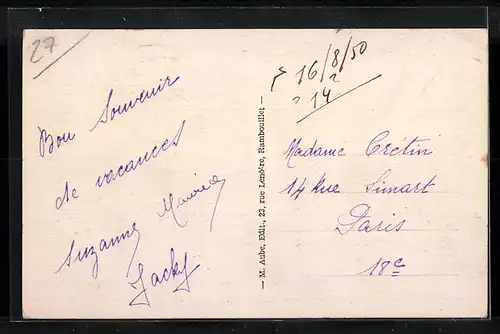 27
Bon Souvenir
de vacances
Suzanne Maurice
Jacky
— M. Aube, Edit., 23, rue Lenôtre, Rambouillet —
16/8/50
14
Madame Crétin
14 Rue Simart
Paris
18e